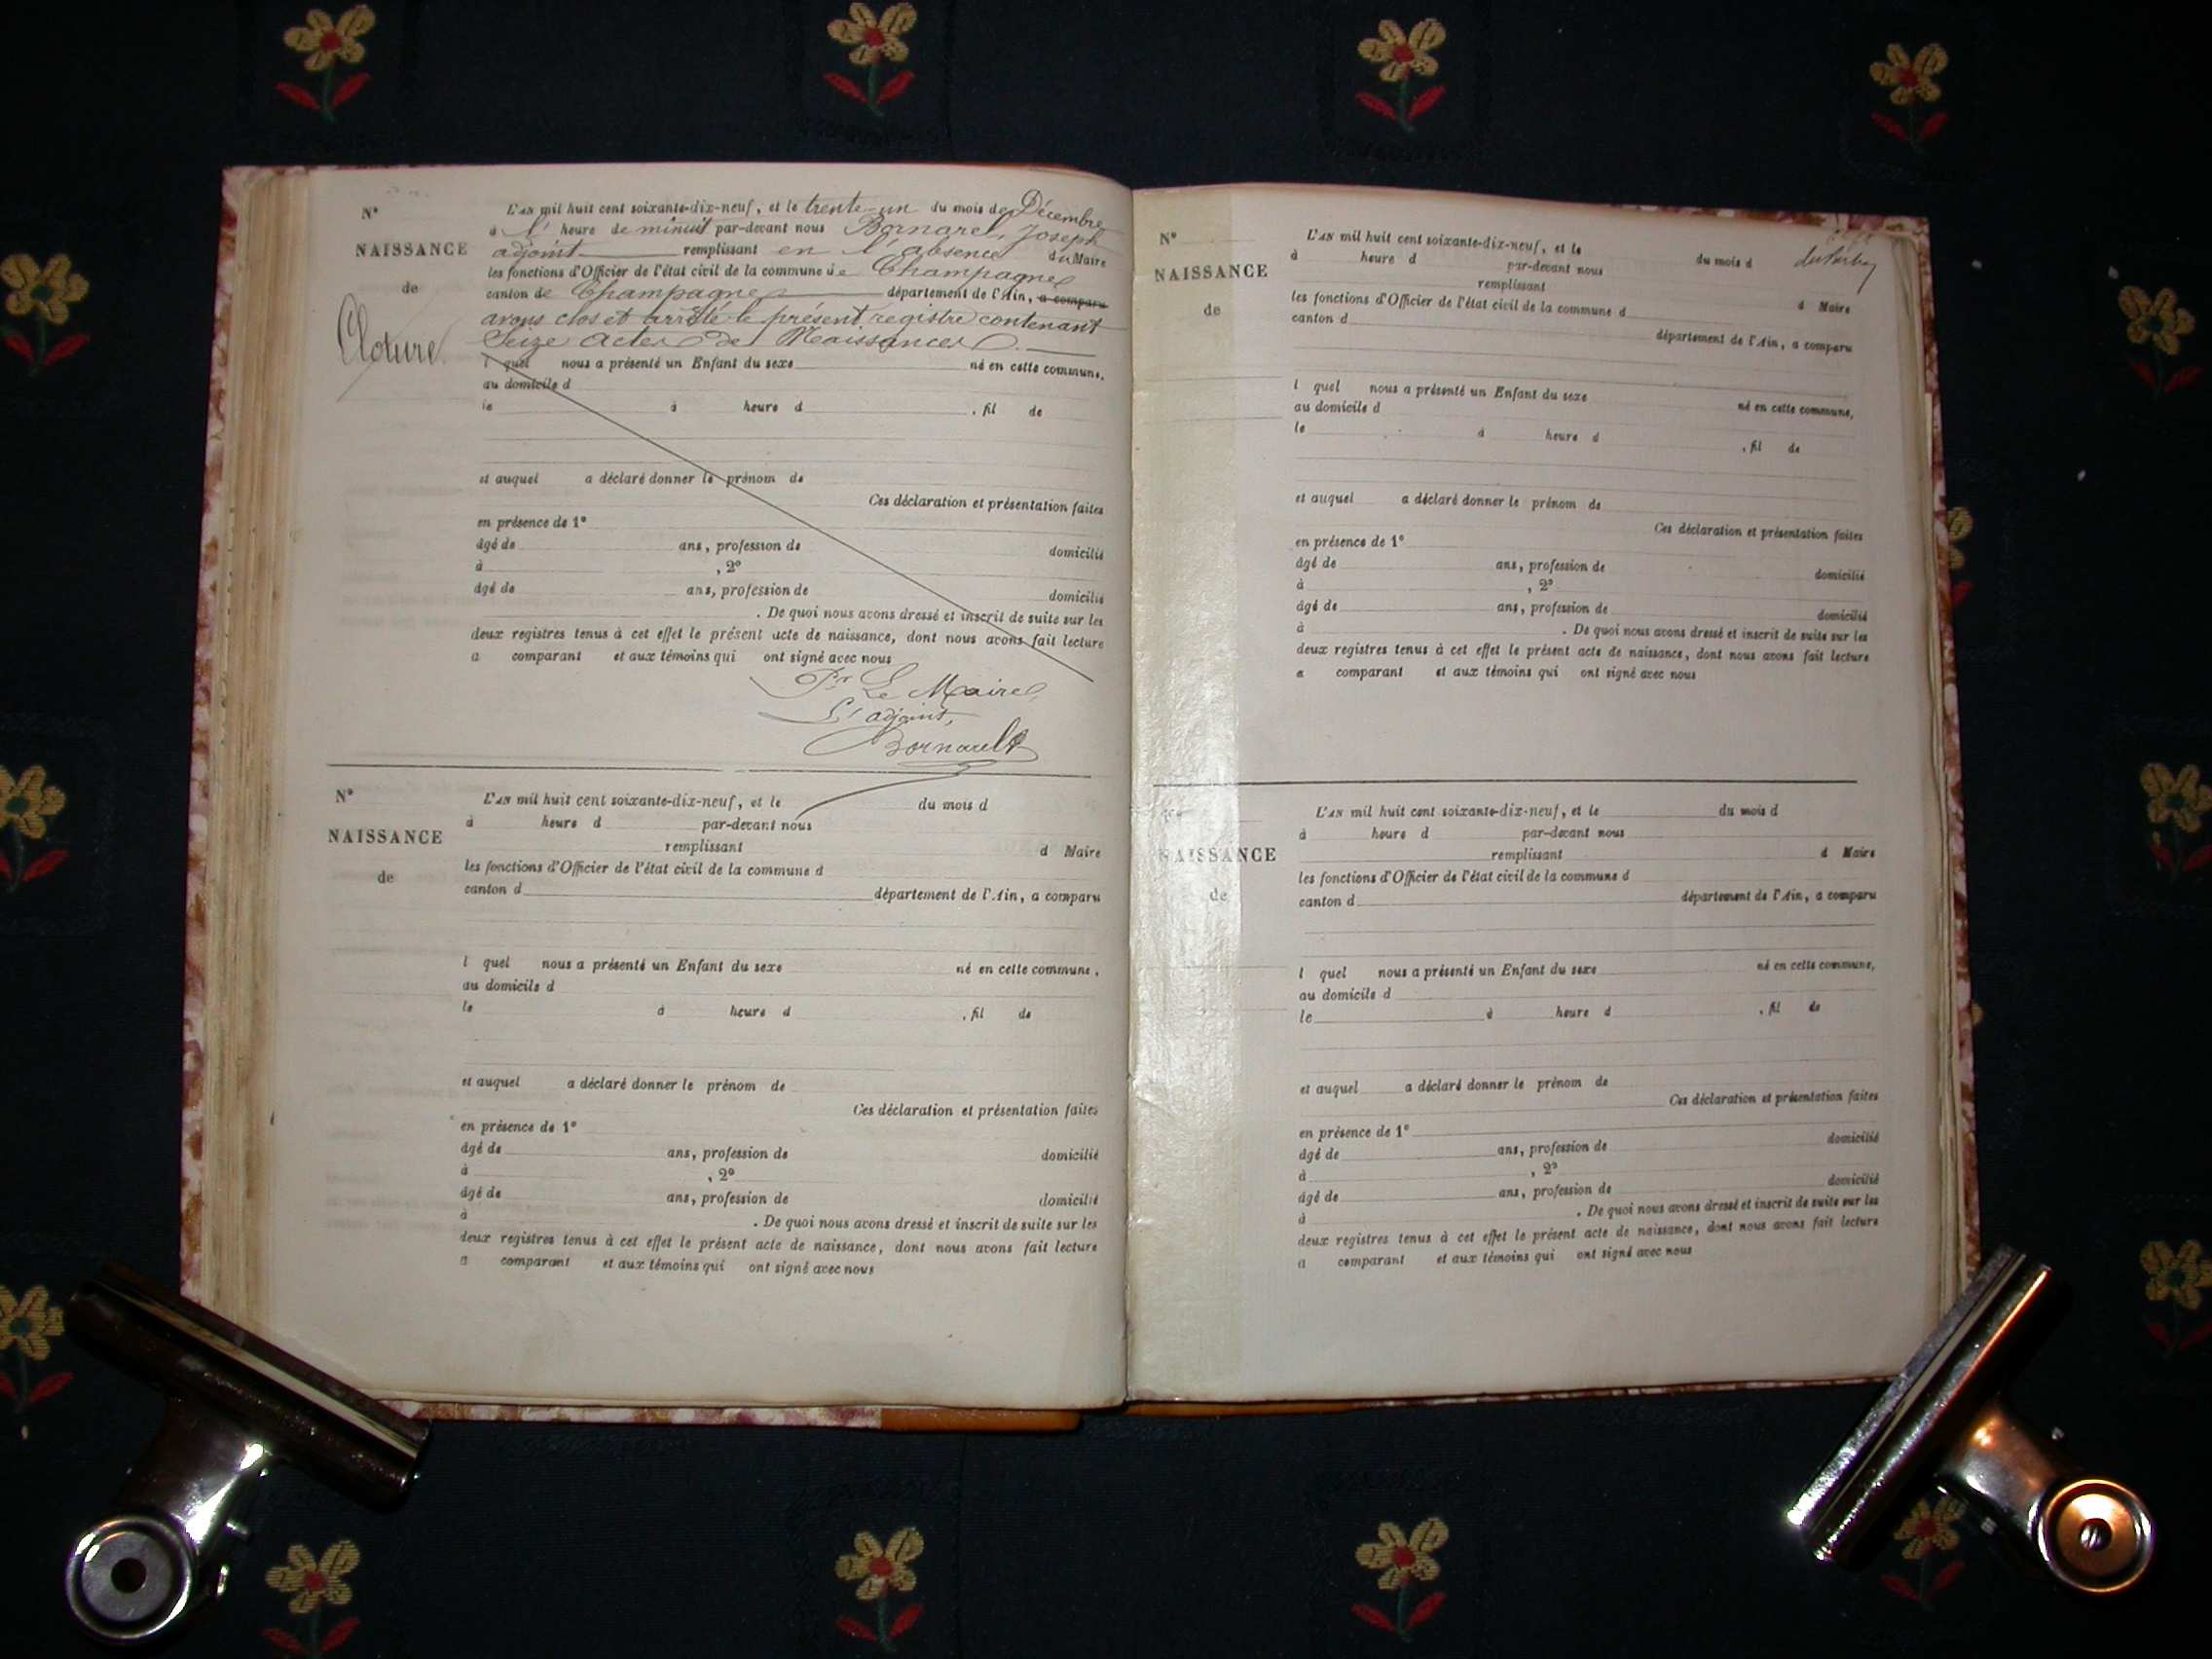 N°
NAISSANCE
de
Cloture
L'AN mil huit cent soixante-dix-neuf, et le trente-un du mois de Décembre
à l' heure de minuit par-devant nous Bornarel, Joseph
adjoint remplissant en l'absence du Maire
les fonctions d'Officier de l'état civil de la commune de Champagne
canton de Champagne département de l'Ain, a comparu
avons clos et arrêté le présent registre contenant
Seize actes de Naissances.
l quel nous a présenté un Enfant du sexe né en cette commune,
au domicile d
le à heure d , fil de
et auquel a déclaré donner le prénom de
Ces déclaration et présentation faites
en présence de 1°
âgé de ans, profession de domicilié
à , 2°
âgé de ans, profession de domicilié
. De quoi nous avons dressé et inscrit de suite sur les
deux registres tenus à cet effet le présent acte de naissance, dont nous avons fait lecture
a comparant et aux témoins qui ont signé avec nous
Pr Le Maire
L'adjoint,
N°
NAISSANCE
de
L'AN mil huit cent soixante-dix-neuf, et le du mois d
à heure d par-devant nous
remplissant d Maire
les fonctions d'Officier de l'état civil de la commune d
canton d département de l'Ain, a comparu
l quel nous a présenté un Enfant du sexe né en cette commune,
au domicile d
le à heure d , fil de
et auquel a déclaré donner le prénom de
Ces déclaration et présentation faites
en présence de 1°
âgé de ans, profession de domicilié
à , 2°
âgé de ans, profession de domicilié
à . De quoi nous avons dressé et inscrit de suite sur les
deux registres tenus à cet effet le présent acte de naissance, dont nous avons fait lecture
a comparant et aux témoins qui ont signé avec nous
N°
NAISSANCE
de
L'AN mil huit cent soixante-dix-neuf, et le du mois d
à heure d par-devant nous
remplissant d Maire
les fonctions d'Officier de l'état civil de la commune d
canton d département de l'Ain, a comparu
l quel nous a présenté un Enfant du sexe né en cette commune,
au domicile d
le à heure d , fil de
et auquel a déclaré donner le prénom de
Ces déclaration et présentation faites
en présence de 1°
âgé de ans, profession de domicilié
à , 2°
âgé de ans, profession de domicilié
à . De quoi nous avons dressé et inscrit de suite sur les
deux registres tenus à cet effet le présent acte de naissance, dont nous avons fait lecture
a comparant et aux témoins qui ont signé avec nous
N°
NAISSANCE
de
L'AN mil huit cent soixante-dix-neuf, et le du mois d
à heure d par-devant nous
remplissant d Maire
les fonctions d'Officier de l'état civil de la commune d
canton d département de l'Ain, a comparu
l quel nous a présenté un Enfant du sexe né en cette commune,
au domicile d
le à heure d , fil de
et auquel a déclaré donner le prénom de
Ces déclaration et présentation faites
en présence de 1°
âgé de ans, profession de domicilié
à , 2°
âgé de ans, profession de domicilié
à . De quoi nous avons dressé et inscrit de suite sur les
deux registres tenus à cet effet le présent acte de naissance, dont nous avons fait lecture
a comparant et aux témoins qui ont signé avec nous